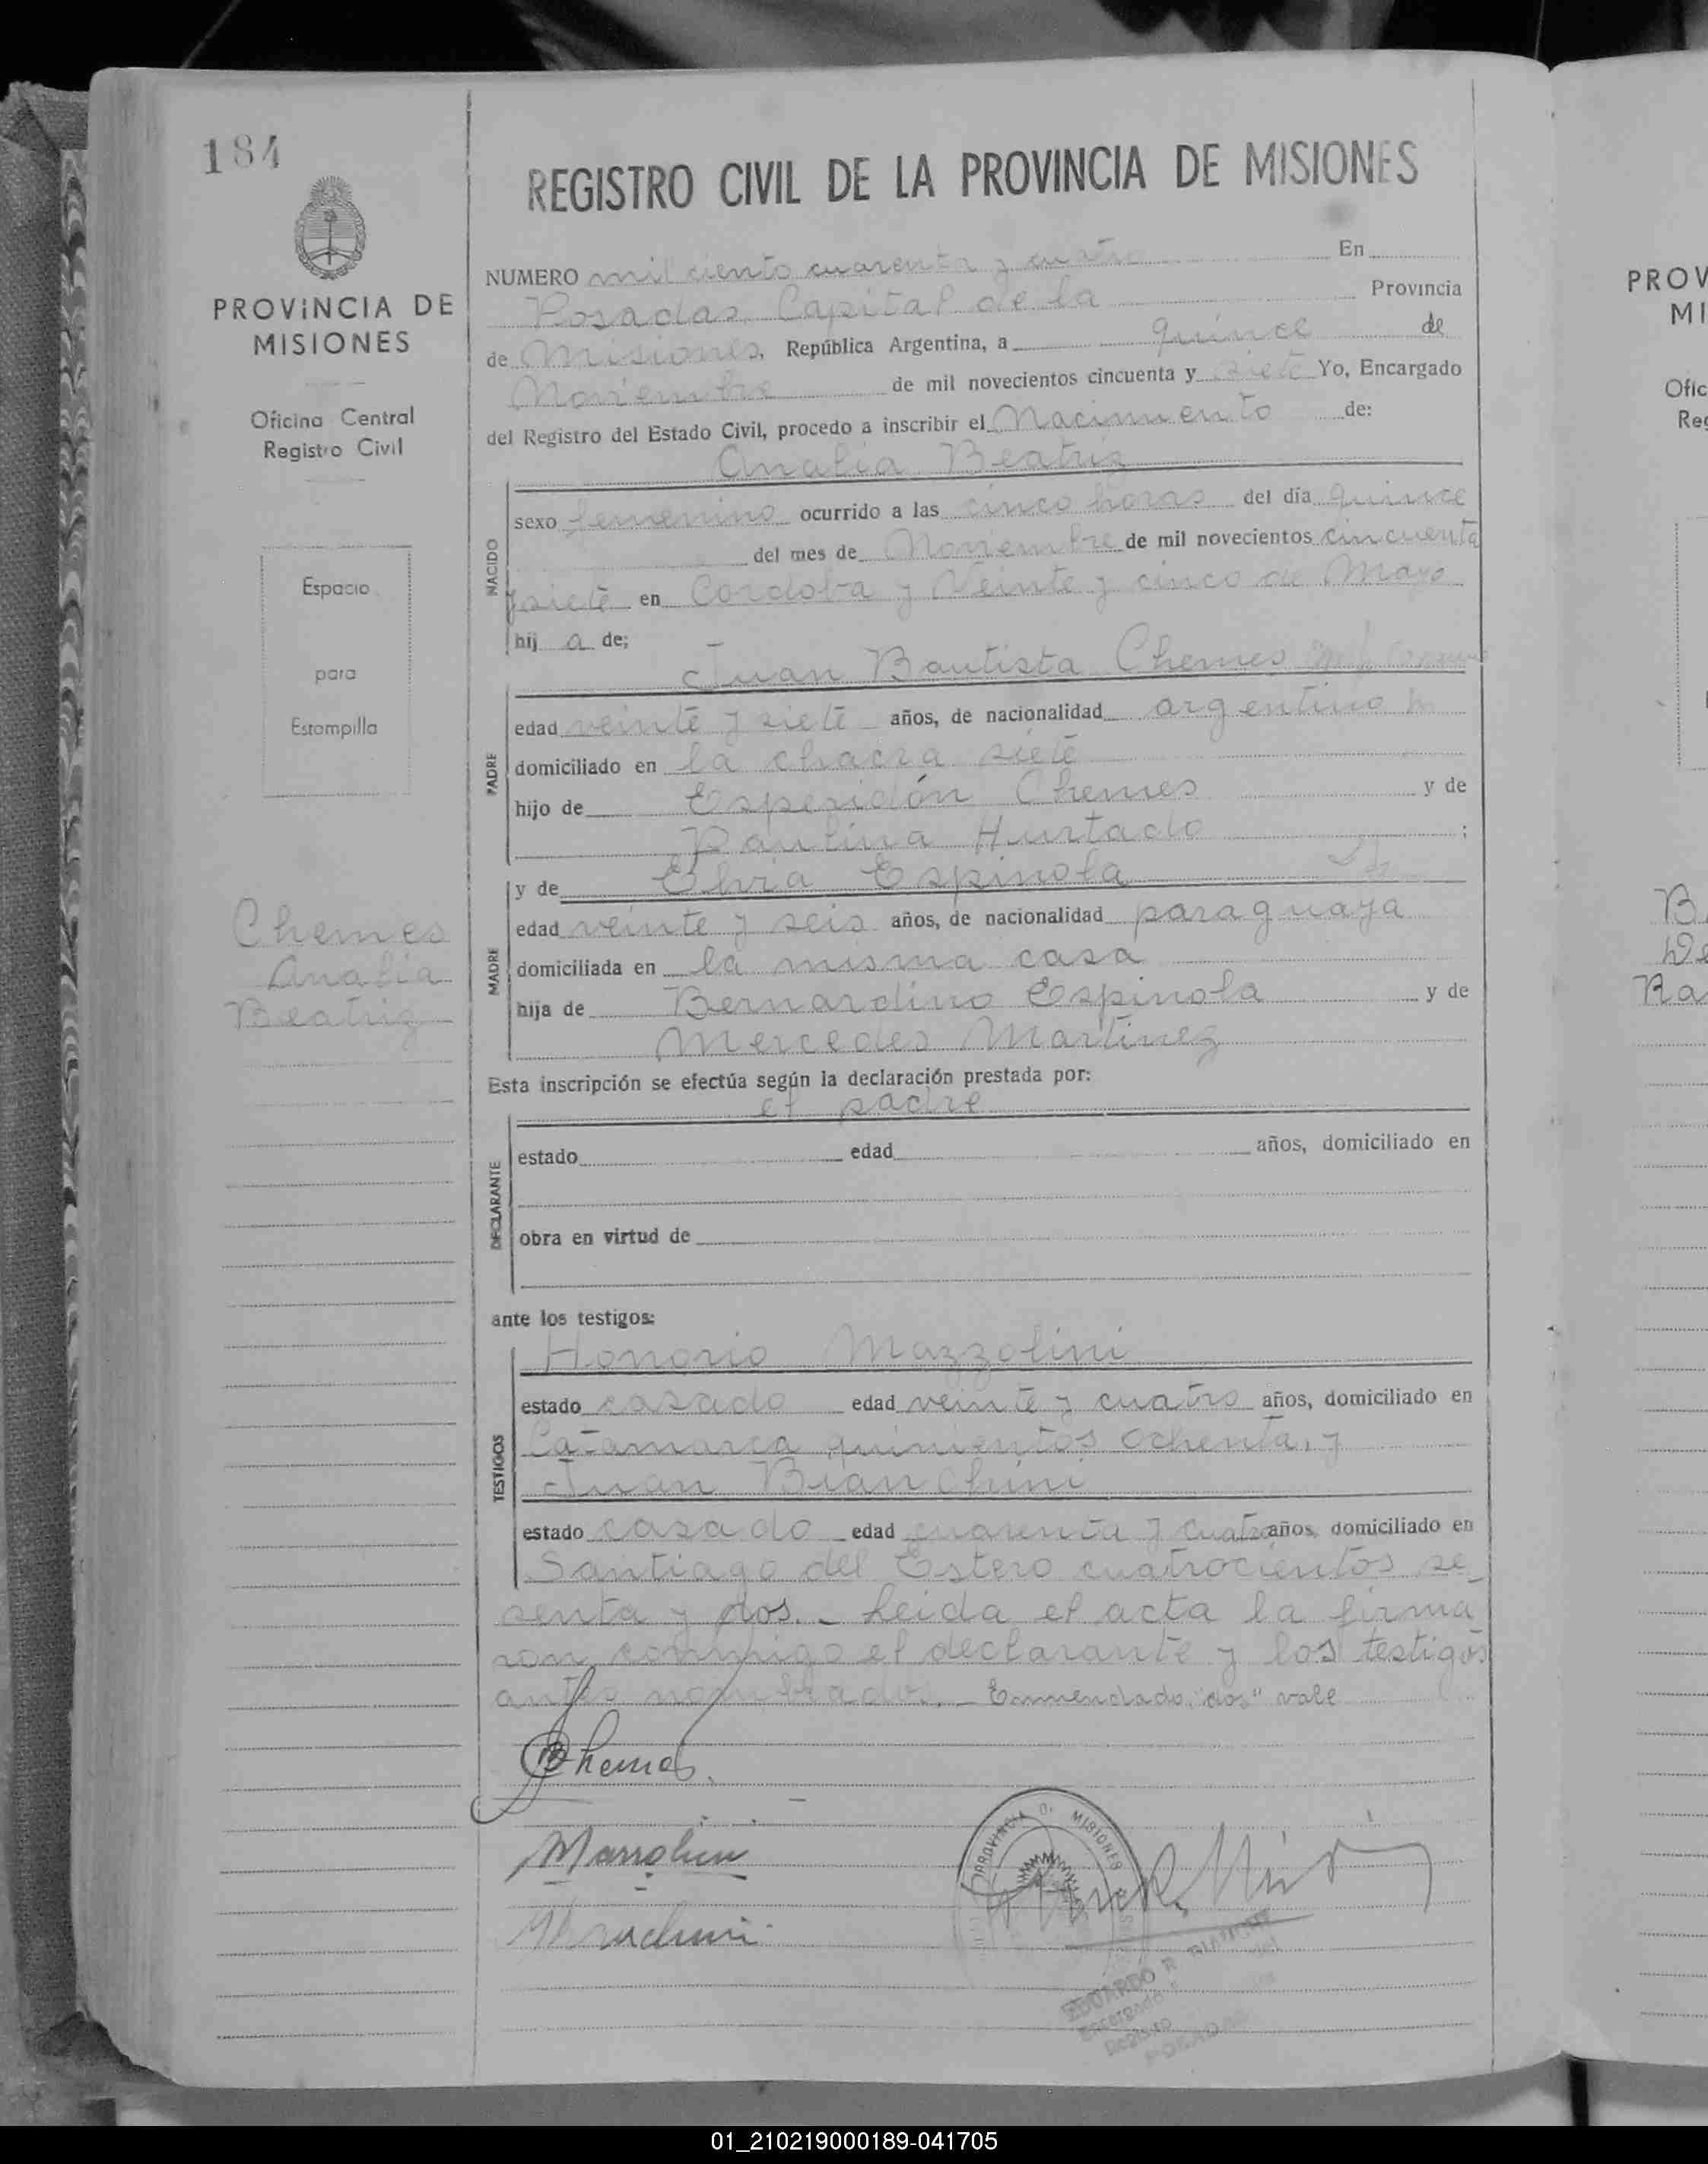 184
REGISTRO CIVIL DE LA PROVINCIA DE MISIONES
PROVINCIA DE
MISIONES
Oficina Central
Registro Civil
Espacio
para
Estampilla
Chemes
Analia
Beatriz
NUMERO mil ciento cuarenta y cuatro En
Posadas, Capital de la Provincia
de Misiones, República Argentina, a quince de
Noviembre de mil novecientos cincuenta y siete Yo, Encargado
del Registro del Estado Civil, procedo a inscribir el Nacimiento de:
Analia Beatriz
NACIDO
sexo femenino ocurrido a las cinco horas del día quince
del mes de Noviembre de mil novecientos cincuenta
y siete en Cordoba y Veinte y cinco de Mayo
hij a de;
Juan Bautista Chemes
PADRE
edad veinte y siete años, de nacionalidad argentino
domiciliado en la chacra siete
hijo de Esperidón Chemes y de
Paulina Hurtado ;
y de Elvia Espinola
MADRE
edad veinte y seis años, de nacionalidad paraguaya
domiciliada en la misma casa
hija de Bernardino Espinola y de
Mercedes Martinez
Esta inscripción se efectúa según la declaración prestada por:
el padre
DECLARANTE
estado edad años, domiciliado en
obra en virtud de
ante los testigos:
Honorio Mazzolini
TESTIGOS
estado casado edad veinte y cuatro años, domiciliado en
Catamarca quinientos ochenta, y
Juan Bianchini
estado casado edad cuarenta y cuatro años, domiciliado en
Santiago del Estero cuatrocientos se_
senta y dos. - Leida el acta la firma
ron conmigo el declarante y los testigos
antes nombrados. - Enmendado: "dos" vale
Chemes.
Mazzolini
PROVINCIA D. MISIONES
EDUARDO R
Encargado
Registro
POSADAS
PROV
MI
Ofic
Reg
B
De
Ra
01_210219000189-041705